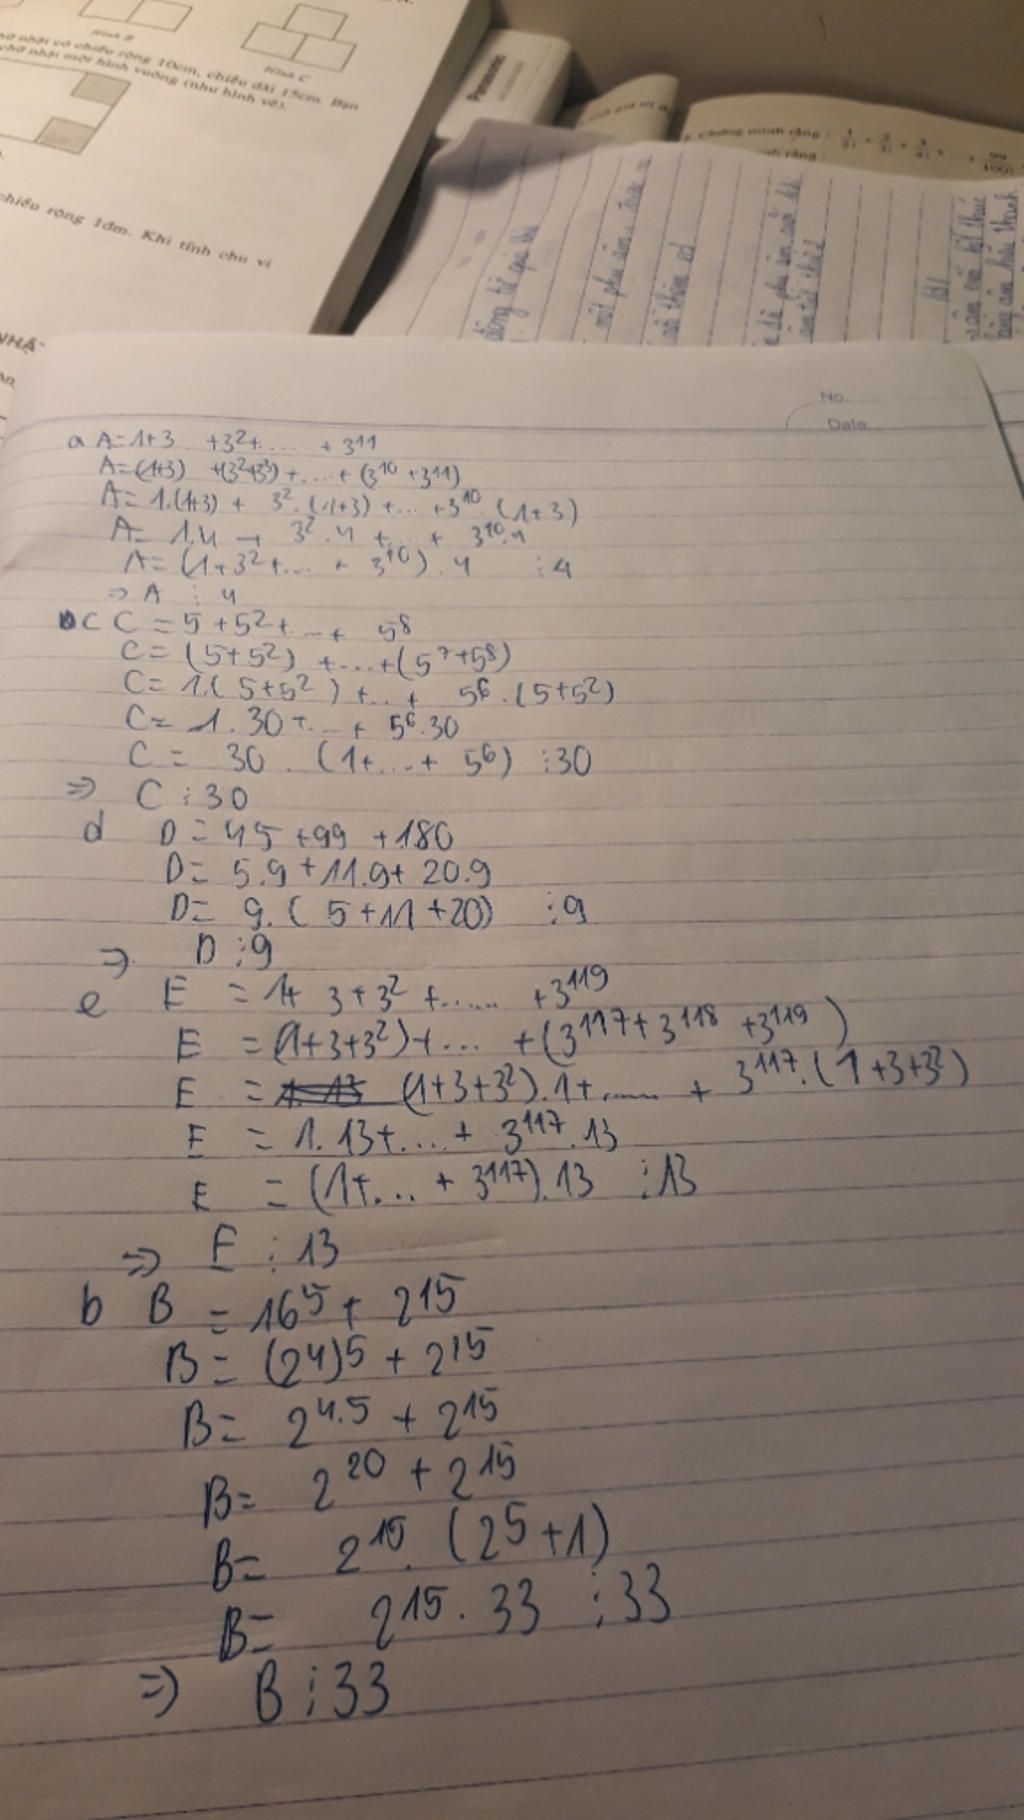 Hình B
Hình C
chữ nhật có chiều rộng 10cm, chiều dài 15cm. Bạn
chữ nhật một hình vuông (như hình vẽ).
chiều rộng 1dm. Khi tính chu vi
NHẬ
Panasonic
Chứng minh rằng :
No.
Date
a A=1+3 +3²+..... + 3¹¹
A=(1+3) +(3²+3³)+.....+ (3¹⁰ +3¹¹)
A= 1.(1+3) + 3².(1+3) +... +3¹⁰.(1+3)
A= 1.4 + 3².4 +... + 3¹⁰.4
A= (1+3²+... + 3¹⁰).4 ⋮4
⇒ A ⋮ 4
c C = 5 +5²+...+ 5⁸
C= (5+5²) +....+(5⁷+5⁸)
C= 1.(5+5²) +...+ 5⁶.(5+5²)
C= 1.30+...+ 5⁶.30
C= 30 . (1+...+ 5⁶) ⋮30
⇒ C ⋮30
d D= 45 +99 +180
D= 5.9+11.9+ 20.9
D= 9.( 5+11+20) ⋮9
⇒ D ⋮9
e E = 1+ 3+3² +...... +3¹¹⁹
E = (1+3+3²)+... +(3¹¹⁷+3¹¹⁸ +3¹¹⁹)
E = (1+3+3²).1+...... + 3¹¹⁷.(1+3+3²)
E = 1.13+...+ 3¹¹⁷.13
E = (1+...+ 3¹¹⁷).13 ⋮13
⇒ E ⋮ 13
b B = 16⁵+ 2¹⁵
B= (2⁴)⁵ + 2¹⁵
B= 2⁴·⁵ + 2¹⁵
B= 2²⁰ + 2¹⁵
B= 2¹⁵. (2⁵+1)
B= 2¹⁵.33 ⋮33
⇒ B⋮33